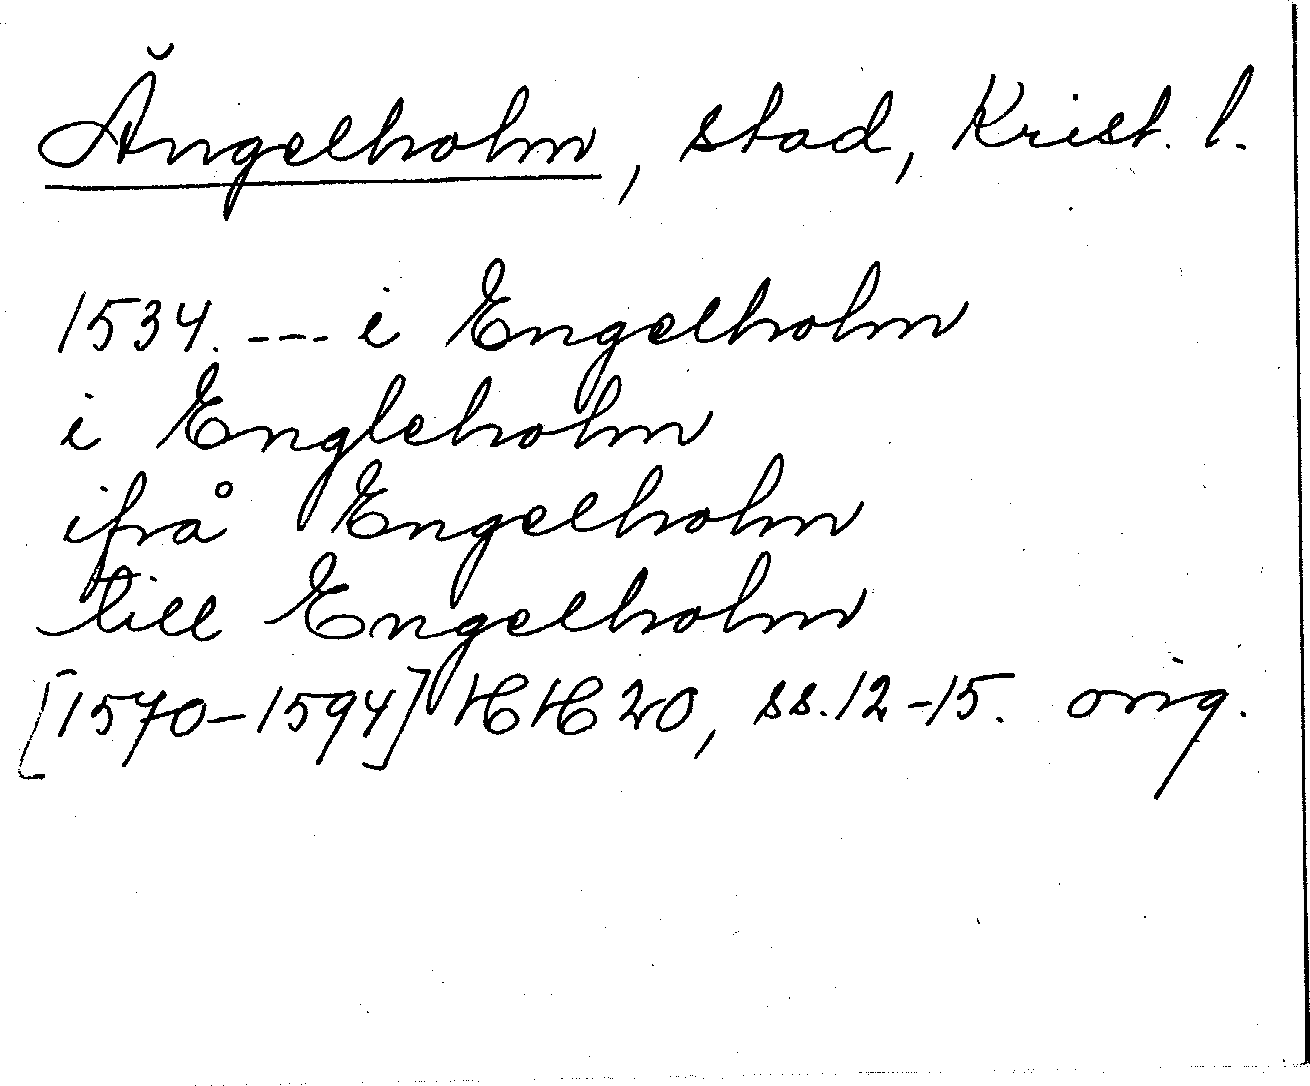 Ängelholm, stad, Krist. l.
1534. --- i Engelholm
i Engleholm
ifrå Engelholm
till Engelholm
[1570-1594] HH 20, ss. 12-15. orig.